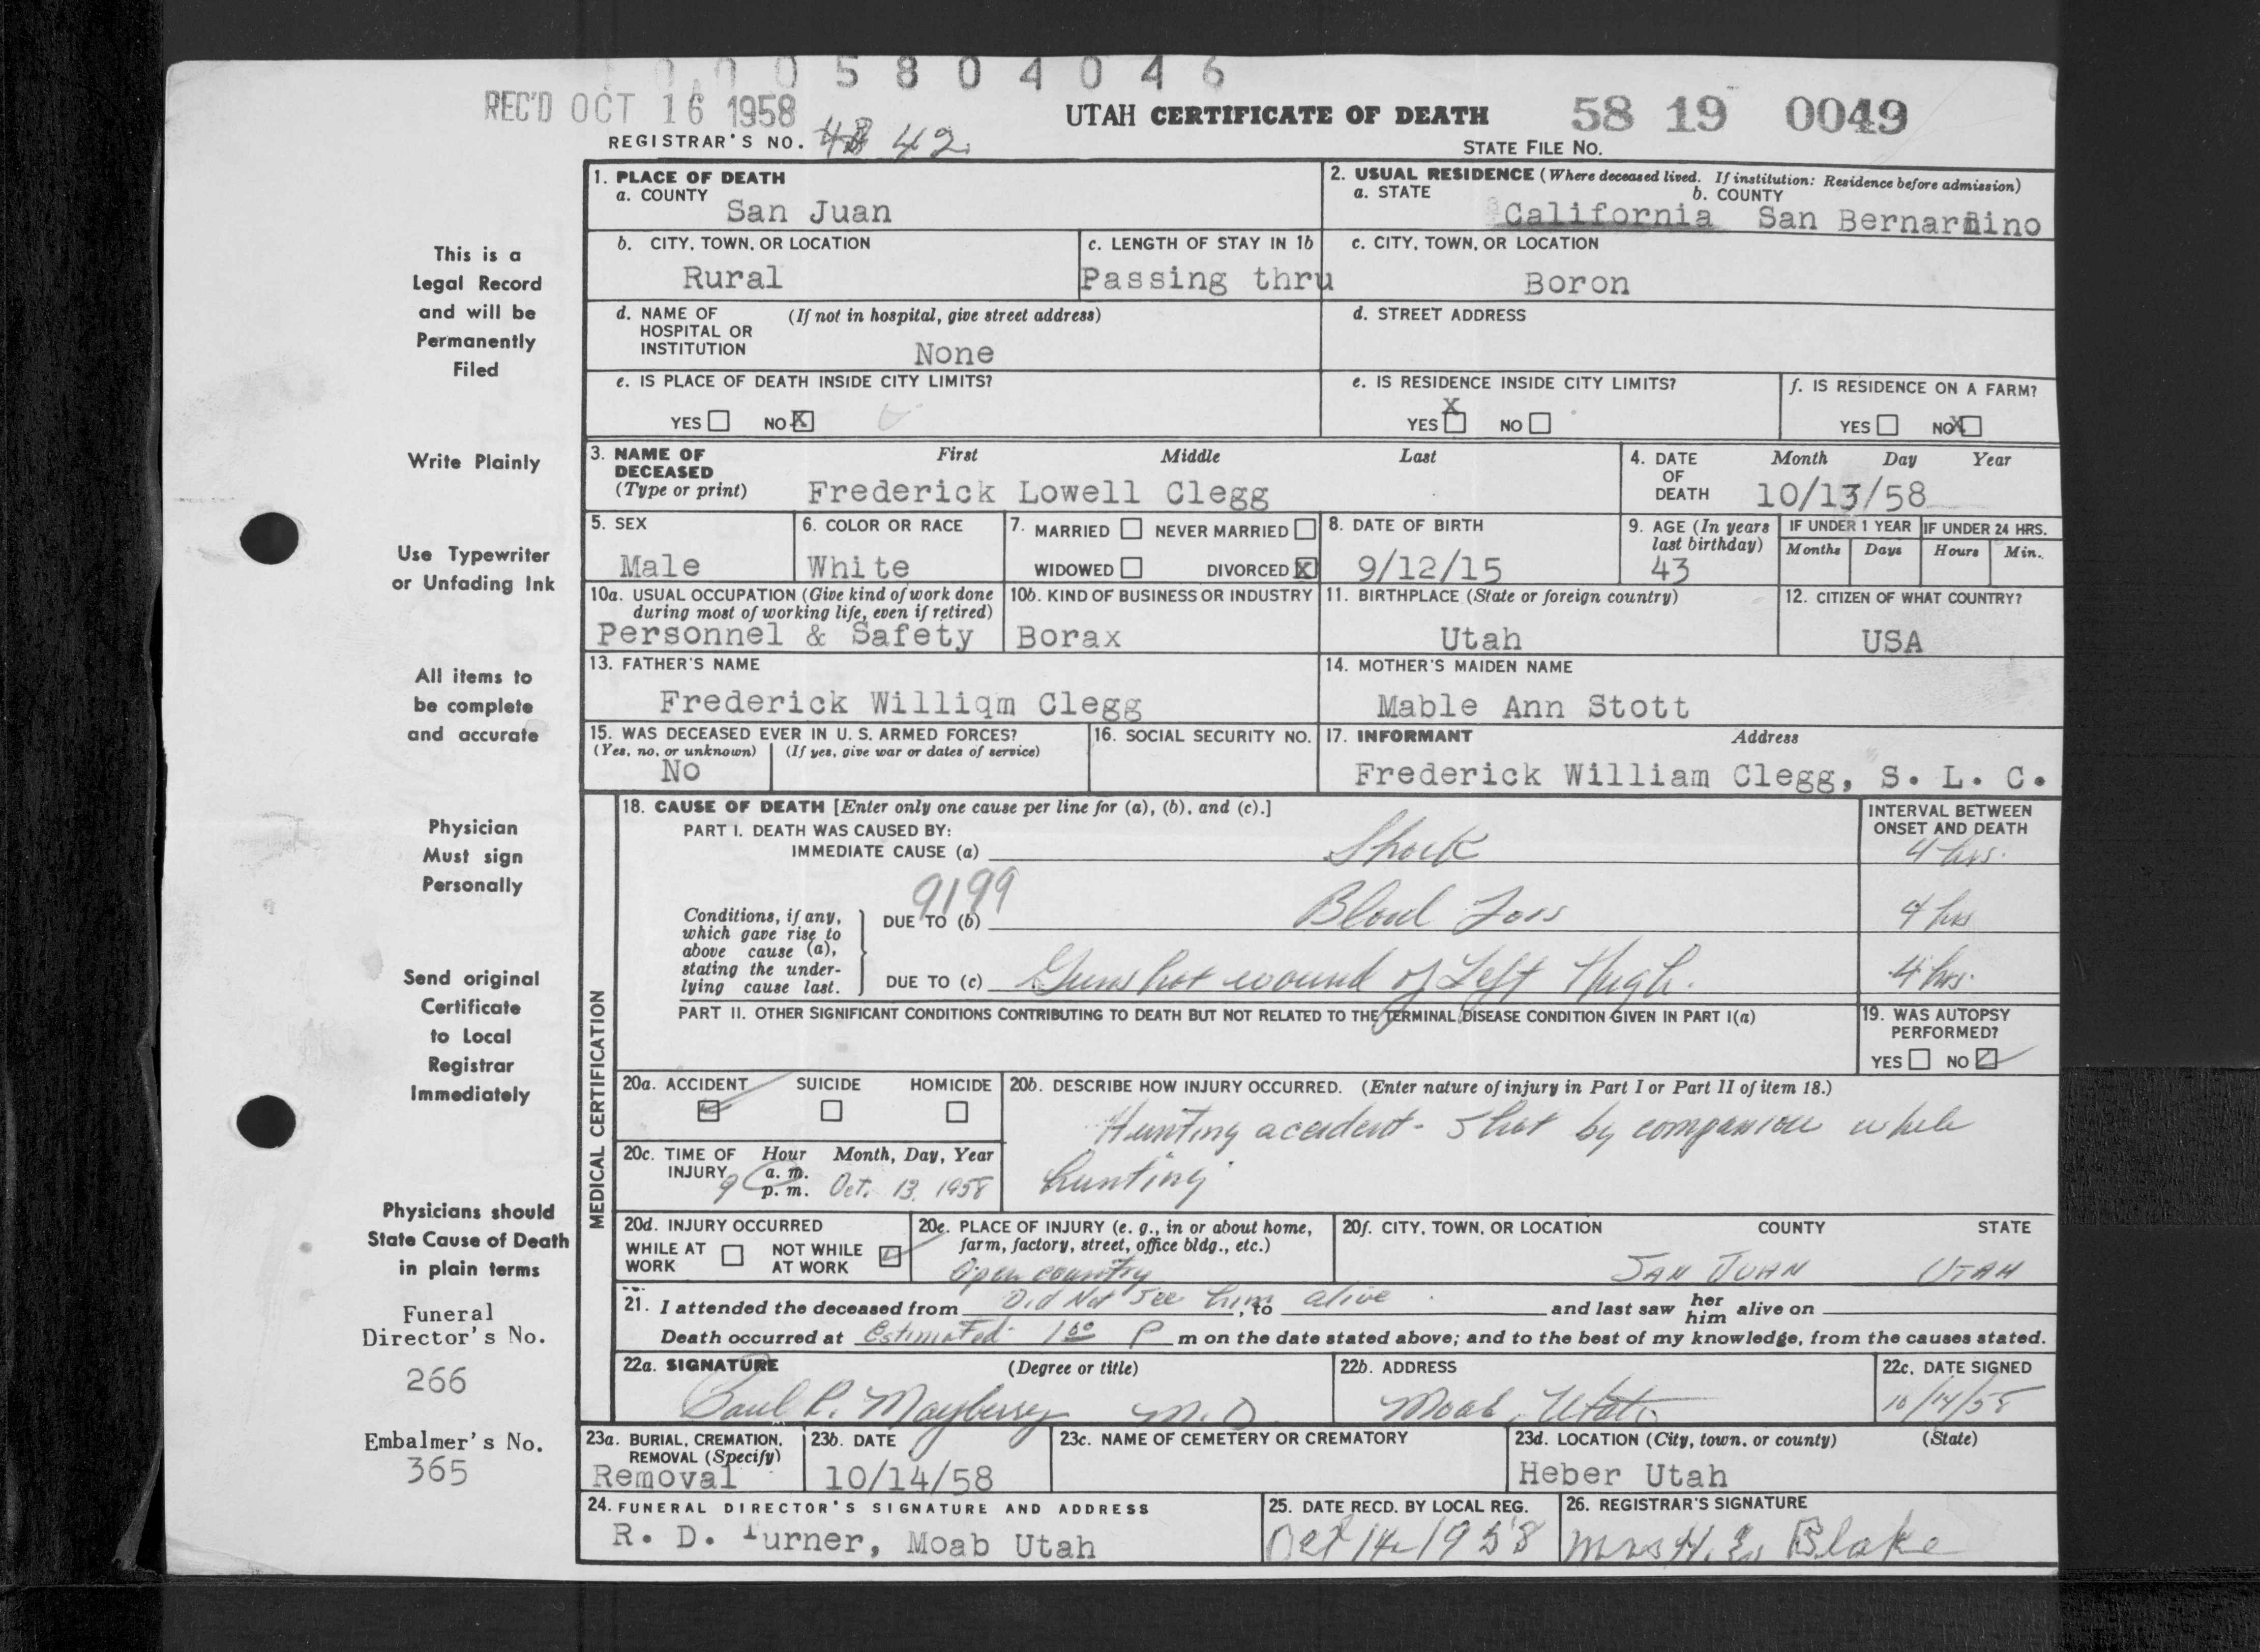 0005804046
REC'D OCT 16 1958
UTAH CERTIFICATE OF DEATH
58 19 0049
REGISTRAR'S NO. 48 42
STATE FILE NO.
This is a
Legal Record
and will be
Permanently
Filed
Write Plainly
Use Typewriter
or Unfading Ink
All items to
be complete
and accurate
Physician
Must sign
Personally
Send original
Certificate
to Local
Registrar
Immediately
Physicians should
State Cause of Death
in plain terms
Funeral
Director's No.
266
Embalmer's No.
365
1. PLACE OF DEATH
a. COUNTY
San Juan
2. USUAL RESIDENCE (Where deceased lived. If institution: Residence before admission)
a. STATE b. COUNTY
California San Bernardino
b. CITY, TOWN, OR LOCATION
Rural
c. LENGTH OF STAY IN 1b
Passing thru
c. CITY, TOWN, OR LOCATION
Boron
d. NAME OF (If not in hospital, give street address)
HOSPITAL OR
INSTITUTION
None
d. STREET ADDRESS
e. IS PLACE OF DEATH INSIDE CITY LIMITS?
YES NO X
e. IS RESIDENCE INSIDE CITY LIMITS?
X
YES NO
f. IS RESIDENCE ON A FARM?
YES NO X
3. NAME OF First Middle Last
DECEASED
(Type or print) Frederick Lowell Clegg
4. DATE Month Day Year
OF
DEATH 10/13/58
5. SEX
Male
6. COLOR OR RACE
White
7. MARRIED NEVER MARRIED
WIDOWED DIVORCED X
8. DATE OF BIRTH
9/12/15
9. AGE (In years
last birthday)
43
IF UNDER 1 YEAR IF UNDER 24 HRS.
Months Days Hours Min.
10a. USUAL OCCUPATION (Give kind of work done
during most of working life, even if retired)
Personnel & Safety
10b. KIND OF BUSINESS OR INDUSTRY
Borax
11. BIRTHPLACE (State or foreign country)
Utah
12. CITIZEN OF WHAT COUNTRY?
USA
13. FATHER'S NAME
Frederick Williqm Clegg
14. MOTHER'S MAIDEN NAME
Mable Ann Stott
15. WAS DECEASED EVER IN U. S. ARMED FORCES?
(Yes, no, or unknown) (If yes, give war or dates of service)
No
16. SOCIAL SECURITY NO.
17. INFORMANT Address
Frederick William Clegg, S. L. C.
MEDICAL CERTIFICATION
18. CAUSE OF DEATH [Enter only one cause per line for (a), (b), and (c).]
PART I. DEATH WAS CAUSED BY:
IMMEDIATE CAUSE (a) Shock
INTERVAL BETWEEN
ONSET AND DEATH
4 hrs.
9199
Conditions, if any,
which gave rise to
above cause (a),
stating the under-
lying cause last.
DUE TO (b) Blood Loss
4 hrs
DUE TO (c) Gunshot wound of Left Thigh.
4 hrs.
PART II. OTHER SIGNIFICANT CONDITIONS CONTRIBUTING TO DEATH BUT NOT RELATED TO THE TERMINAL DISEASE CONDITION GIVEN IN PART I(a)
19. WAS AUTOPSY
PERFORMED?
YES NO
20a. ACCIDENT SUICIDE HOMICIDE
20b. DESCRIBE HOW INJURY OCCURRED. (Enter nature of injury in Part I or Part II of item 18.)
Hunting accident - Shot by companion while
hunting
20c. TIME OF Hour Month, Day, Year
INJURY a. m.
9 p. m. Oct. 13, 1958
20d. INJURY OCCURRED
WHILE AT NOT WHILE
WORK AT WORK
20e. PLACE OF INJURY (e. g., in or about home,
farm, factory, street, office bldg., etc.)
Open country
20f. CITY, TOWN, OR LOCATION COUNTY STATE
SAN JUAN UTAH
21. I attended the deceased from Did Not See him, to alive and last saw her him alive on
Death occurred at Estimated 1 00 P m on the date stated above; and to the best of my knowledge, from the causes stated.
22a. SIGNATURE (Degree or title)
Paul R. Mayberry M.D.
22b. ADDRESS
Moab, Utah
22c. DATE SIGNED
10/14/58
23a. BURIAL, CREMATION,
REMOVAL (Specify)
Removal
23b. DATE
10/14/58
23c. NAME OF CEMETERY OR CREMATORY
23d. LOCATION (City, town, or county) (State)
Heber Utah
24. FUNERAL DIRECTOR'S SIGNATURE AND ADDRESS
R. D. Turner, Moab Utah
25. DATE RECD. BY LOCAL REG.
Oct 14 1958
26. REGISTRAR'S SIGNATURE
Mrs H. E. Blake